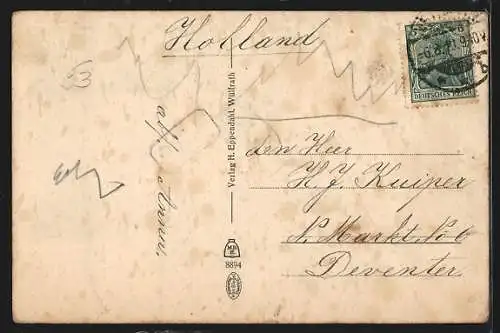 Holland
DEUTSCHES REICH
53
Verlag H. Eppendahl, Wülfrath
M.B.
8894
den Heer
H. J. Kuiper
N. Markt No 6
Deventer